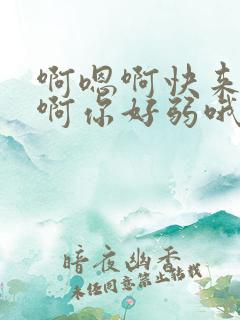 啊嗯啊快来
啊你好弱哦
暗夜幽香
未经同意禁止转载